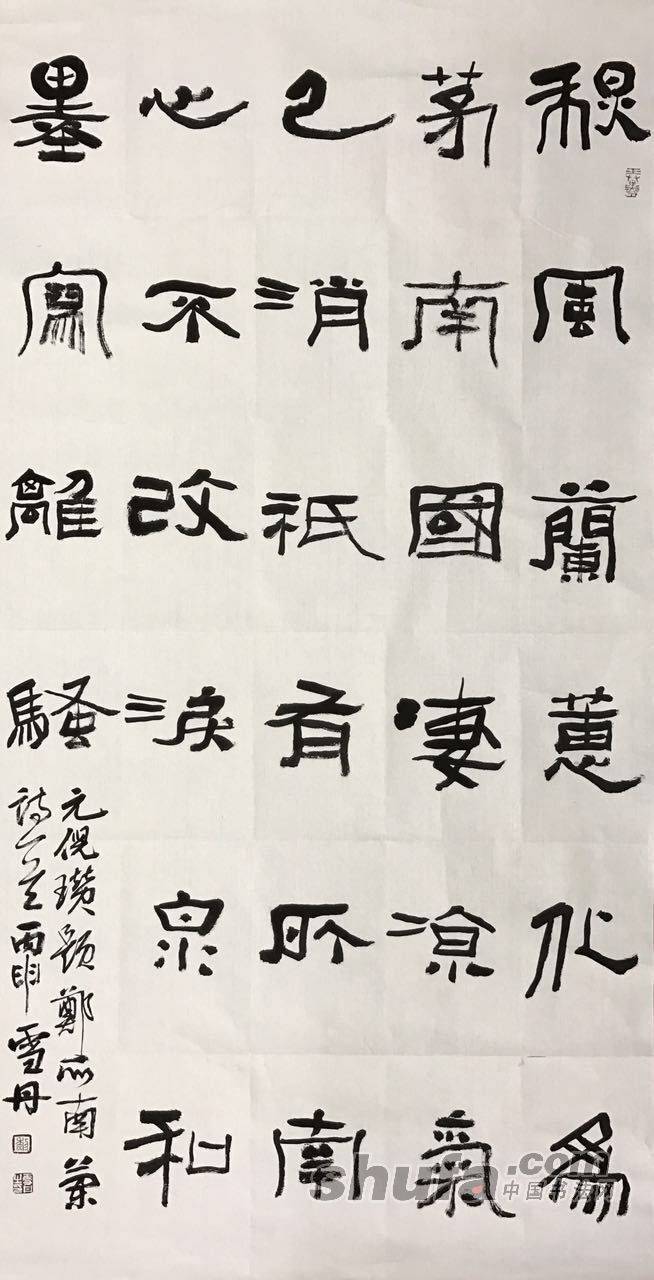 秋風蘭蕙化為
茅南國凄凉氣
已消祇有所南
心不改淚泉和
墨寫離騷
元倪瓚題鄭所南蘭
詩一首丙申雪丹
shufa.com
中国书法网